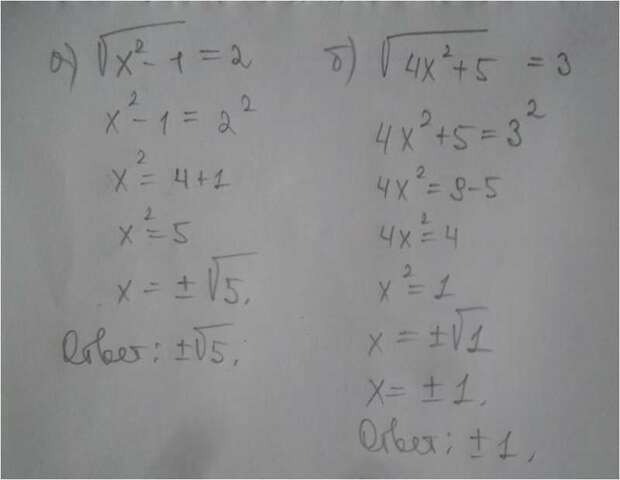 а) √(x² - 1) = 2
x² - 1 = 2²
x² = 4 + 1
x² = 5
x = ±√5.
Ответ: ±√5.
б) √(4x² + 5) = 3
4x² + 5 = 3²
4x² = 9 - 5
4x² = 4
x² = 1
x = ±√1
x = ± 1.
Ответ: ± 1.